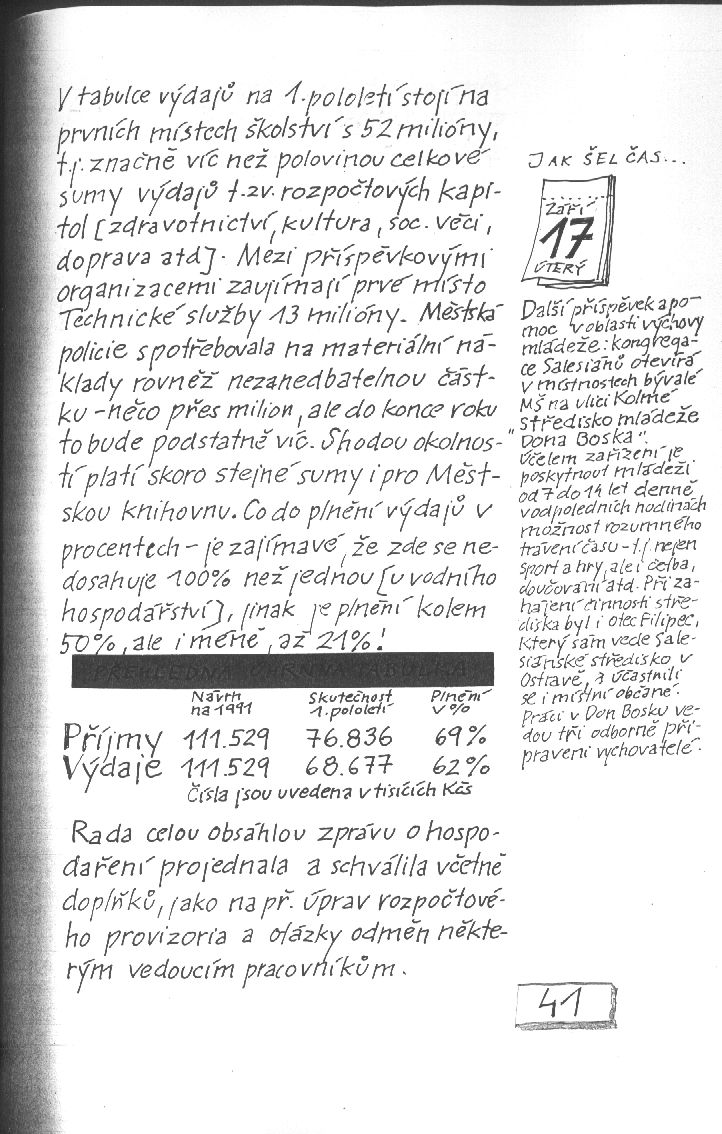 V tabulce výdajů na 1. pololetí stojí na
prvních místech školství s 52 milióny,
t.j. značně víc než polovinou celkové
sumy výdajů t.zv. rozpočtových kapi-
tol [zdravotnictví, kultura, soc. věci,
doprava atd]. Mezi příspěvkovými
organizacemi zaujímají prvé místo
Technické služby 13 milióny. Městská
policie spotřebovala na materiální ná-
klady rovněž nezanedbatelnou část-
ku - něco přes milion, ale do konce roku
to bude podstatně víc. Shodou okolnos-
tí platí skoro stejné sumy i pro Měst-
skou knihovnu. Co do plnění výdajů v
procentech - je zajímavé, že zde se ne-
dosahuje 100% než jednou [u vodního
hospodářství], jinak je plnění kolem
50%, ale i méně, až 21%!
PŘEHLEDNÁ TABULKA
Návrh Skutečnost Plnění
na 1991 1. pololetí v %
Příjmy 111.529 76.836 69%
Výdaje 111.529 68.677 62%
Čísla jsou uvedena v tisících Kčs
Rada celou obsáhlou zprávu o hospo-
daření projednala a schválila včetně
doplňků, jako např. úprav rozpočtové-
ho provizoria a otázky odměn někte-
rým vedoucím pracovníkům.
JAK ŠEL ČAS...
ZÁŘÍ
17
ÚTERÝ
Další příspěvek a po-
moc v oblasti výchovy
mládeže: kongrega-
ce Salesiánů otevírá
v místnostech bývalé
MŠ na ulici Kolmé
"Středisko mládeže
Dona Boska".
Účelem zařízení je
poskytnout mládeži
od 7 do 14 let denně
v odpoledních hodinách
možnost rozumného
trávení času - t.j. nejen
sport a hry, ale i četba,
doučování atd. Při za-
hájení činnosti stře-
diska byl i otec Filipec,
který sám vede Sale-
siánské středisko v
Ostravě, a účastnili
se i místní občané.
Práci v Don Bosku ve-
dou tři odborně při-
praveni vychovatelé.
41